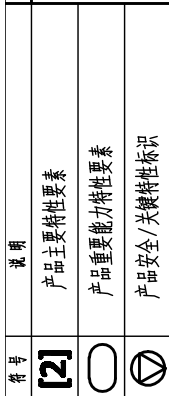 符号 说明
[2] 产品主要特性要素
产品重要能力特性要素
产品安全/关键特性标识